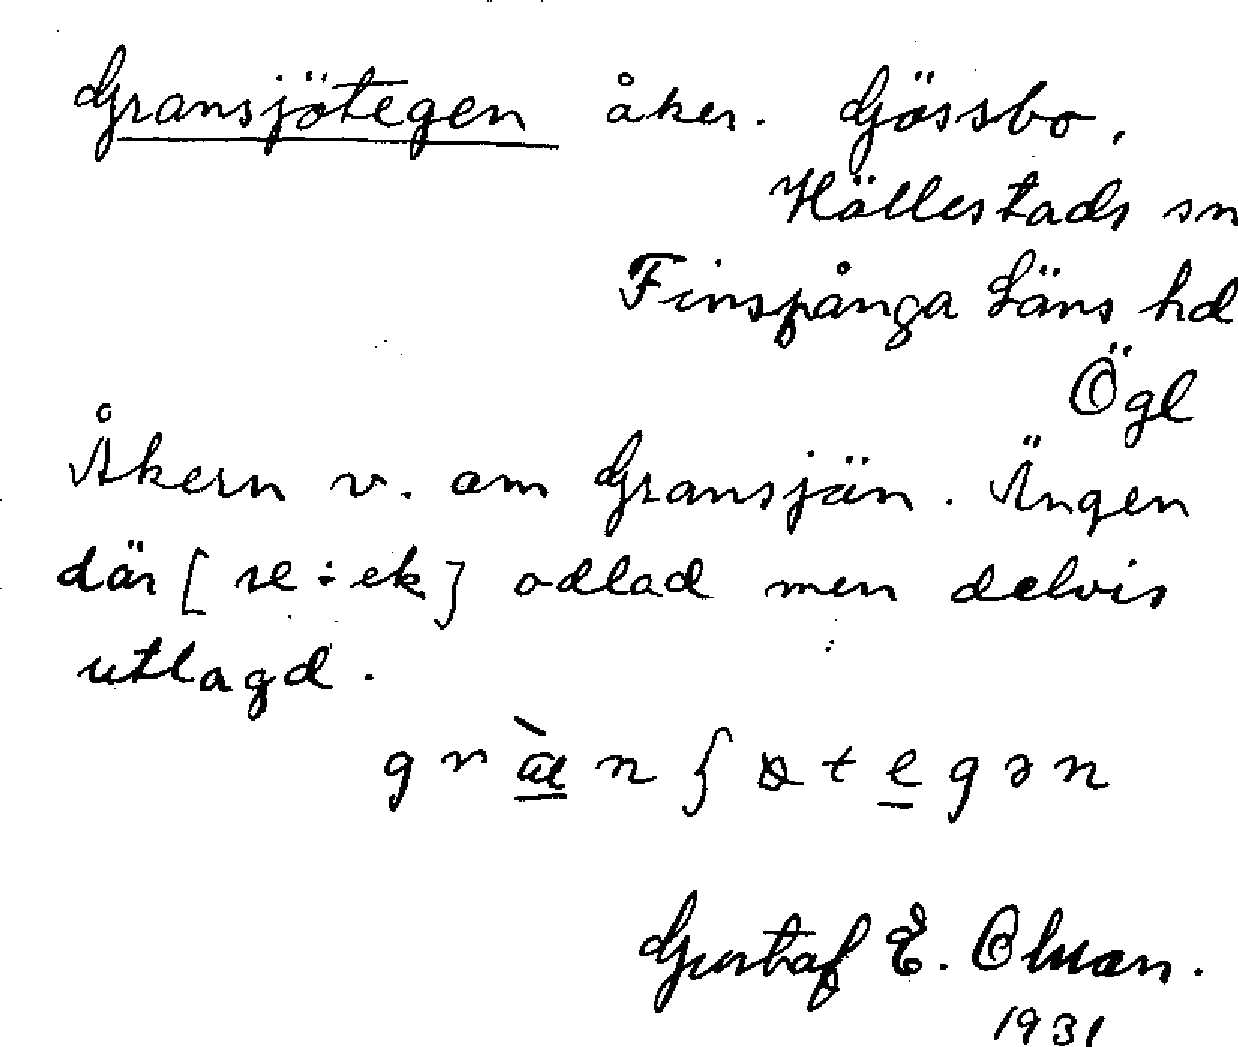 Gransjötegen åker. Gössbo,
Hällestads sn
Finspånga Läns hd
Ögl
Åkern v. om Gransjön. Ängen
där [se ÷ ek] odlad men delvis
utlagd.
Gustaf E. Olsson.
1931